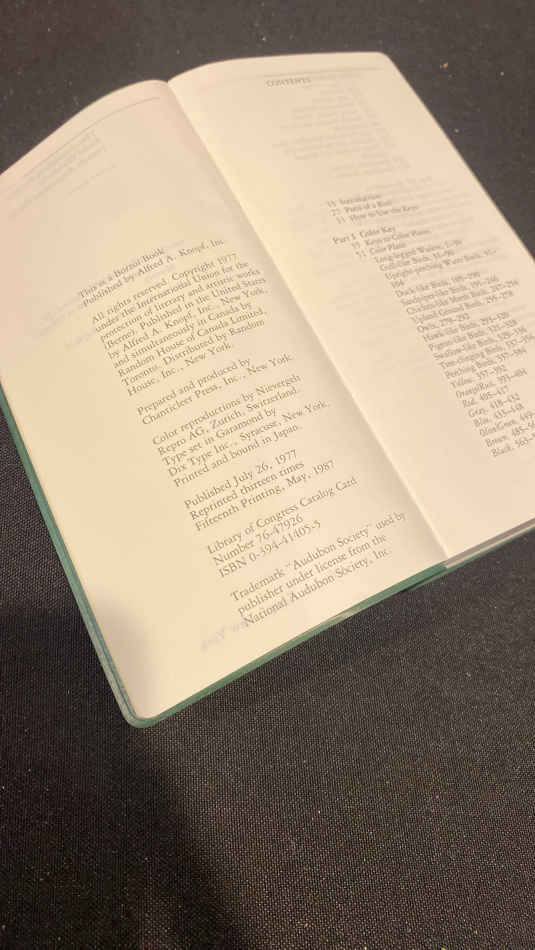 This is a Borzoi Book
Published by Alfred A. Knopf, Inc.
All rights reserved. Copyright 1977
under the International Union for the
protection of literary and artistic works
(Berne). Published in the United States
by Alfred A. Knopf, Inc., New York,
and simultaneously in Canada by
Random House of Canada Limited,
Toronto. Distributed by Random
House, Inc., New York.
Prepared and produced by
Chanticleer Press, Inc., New York.
Color reproductions by Nievergelt
Repro AG, Zurich, Switzerland.
Type set in Garamond by
Dix Type Inc., Syracuse, New York.
Printed and bound in Japan.
Published July 26, 1977
Reprinted thirteen times
Fifteenth Printing, May, 1987
Library of Congress Catalog Card
Number 76-47926
ISBN 0-394-41405-5
Trademark "Audubon Society" used by
publisher under license from the
National Audubon Society, Inc.
CONTENTS
13 Introduction
23 Parts of a Bird
31 How to Use the Keys
Part I Color Key
35 Keys to Color Plates
51 Color Plates
Long-legged Waders, 1–30
Gull-like Birds, 31–90
Upright-perching Water Birds, 91–
104
Duck-like Birds, 105–190
Sandpiper-like Birds, 191–246
Chicken-like Marsh Birds, 247–254
Upland Ground Birds, 255–278
Owls, 279–292
Hawk-like Birds, 293–320
Pigeon-like Birds, 321–328
Swallow-like Birds, 329–336
Tree-clinging Birds, 337–356
Perching Birds, 357–584
Yellow, 357–392
Orange/Red, 393–404
Red, 405–417
Gray, 418–432
Blue, 433–448
Olive/Green, 449–
Brown, 485–
Black, 563–